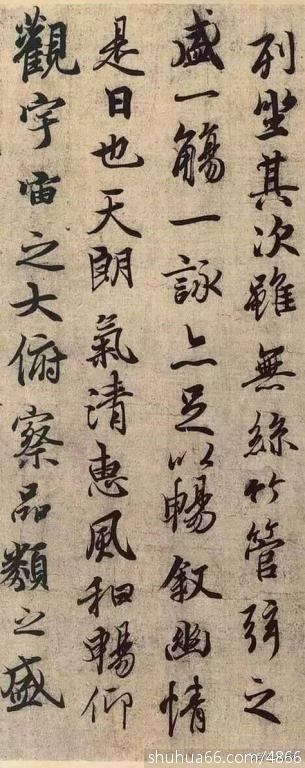 列坐其次雖無絲竹管弦之
盛一觴一詠亦足以暢叙幽情
是日也天朗氣清惠風和暢仰
觀宇宙之大俯察品類之盛
shuhua66.com/4866